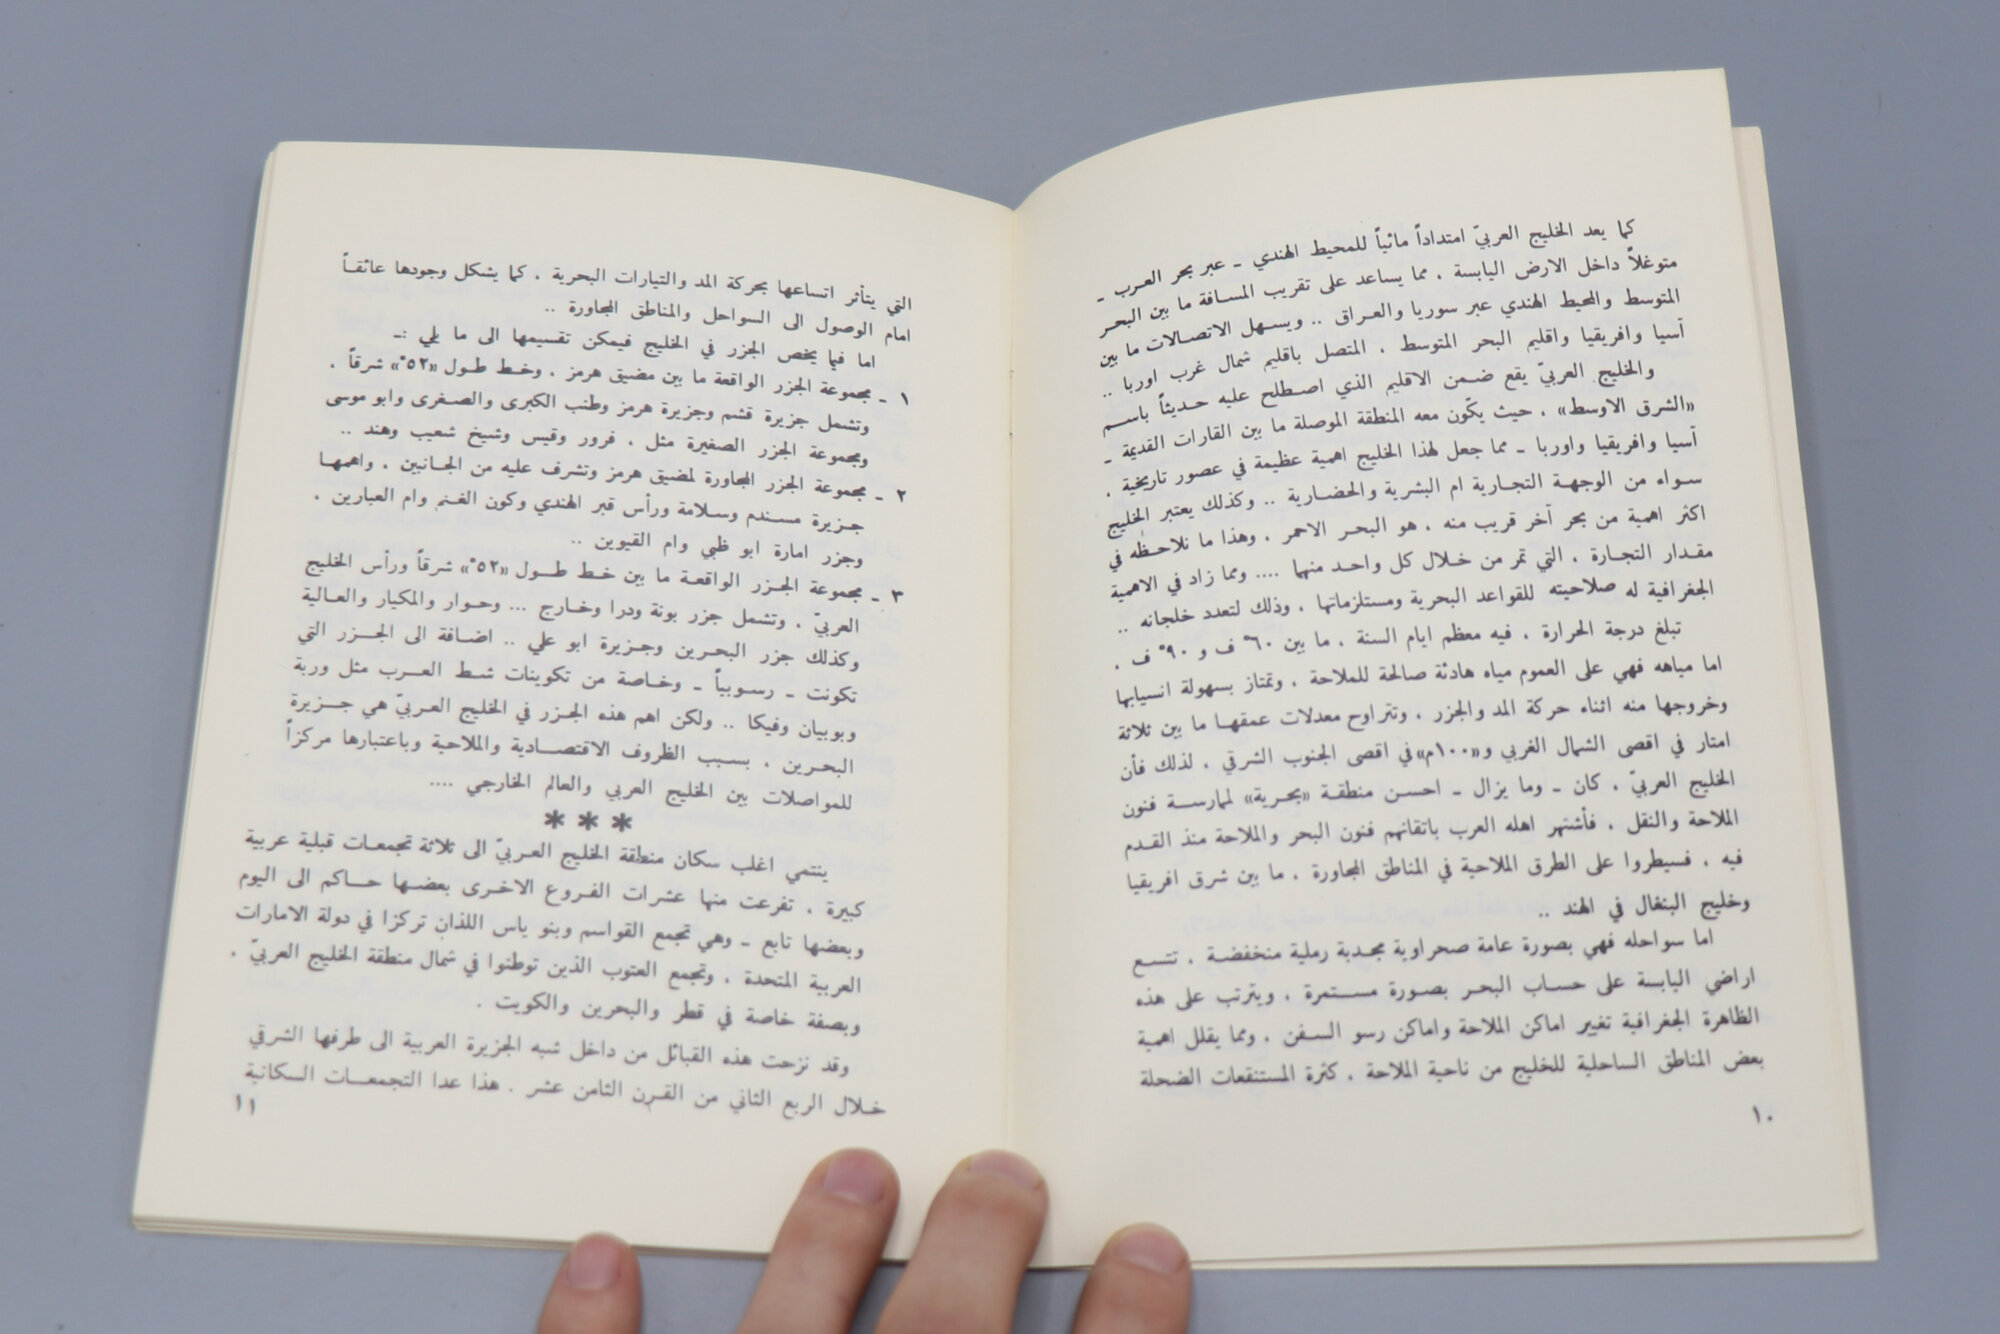 كما يعد الخليج العربيّ امتداداً مائياً للمحيط الهندي ـ عبر بحر العرب ـ
متوغلاً داخل الارض اليابسة ، مما يساعد على تقريب المسافة ما بين البحر
المتوسط والمحيط الهندي عبر سوريا والعراق .. ويسهل الاتصالات ما بين
آسيا وافريقيا واقليم البحر المتوسط ، المتصل باقليم شمال غرب اوربا ..
والخليج العربيّ يقع ضمن الاقليم الذي اصطلح عليه حديثاً باسم
«الشرق الاوسط» ، حيث يكّون معه المنطقة الموصلة ما بين القارات القديمة ـ
آسيا وافريقيا واوربا ـ مما جعل لهذا الخليج اهمية عظيمة في عصور تاريخية ،
سواء من الوجهة التجارية ام البشرية والحضارية .. وكذلك يعتبر الخليج
اكثر اهمية من بحر آخر قريب منه ، هو البحر الاحمر ، وهذا ما نلاحظه في
مقدار التجارة ، التي تمر من خلال كل واحد منهما .... ومما زاد في الاهمية
الجغرافية له صلاحيته للقواعد البحرية ومستلزماتها ، وذلك لتعدد خلجانه ..
تبلغ درجة الحرارة ، فيه معظم ايام السنة ، ما بين ٦٠° ف و ٩٠° ف .
اما مياهه فهي على العموم مياه هادئة صالحة للملاحة ، وتمتاز بسهولة انسيابها
وخروجها منه اثناء حركة المد والجزر . وتتراوح معدلات عمقها ما بين ثلاثة
امتار في اقصى الشمال الغربي و«١٠٠م» في اقصى الجنوب الشرقي . لذلك فأن
الخليج العربيّ ، كان ـ وما يزال ـ احسن منطقة «بحرية» لممارسة فنون
الملاحة والنقل . فأشتهر اهله العرب باتقانهم فنون البحر والملاحة منذ القدم
فيه ، فسيطروا على الطرق الملاحية في المناطق المجاورة ، ما بين شرق افريقيا
وخليج البنغال في الهند ..
اما سواحله فهي بصورة عامة صحراوية مجدبة رملية منخفضة ، تتسع
اراضي اليابسة على حساب البحر بصورة مستمرة ، ويترتب على هذه
الظاهرة الجغرافية تغيير اماكن الملاحة واماكن رسو السفن ، ومما يقلل اهمية
بعض المناطق الساحلية للخليج من ناحية الملاحة ، كثرة المستنقعات الضحلة
١٠
التي يتأثر اتساعها بحركة المد والتيارات البحرية ، كما يشكل وجودها عائقاً
امام الوصول الى السواحل والمناطق المجاورة ..
اما فيما يخص الجزر في الخليج فيمكن تقسيمها الى ما يلي :ـ
١ ـ مجموعة الجزر الواقعة ما بين مضيق هرمز ، وخط طول «٥٢°» شرقاً ،
وتشمل جزيرة قشم وجزيرة هرمز وطنب الكبرى والصغرى وابو موسى
ومجموعة الجزر الصغيرة مثل ، فرور وقيس وشيخ شعيب وهند ..
٢ ـ مجموعة الجزر المجاورة لمضيق هرمز وتشرف عليه من الجانبين ، واهمها
جزيرة مسندم وسلامة ورأس قبر الهندي وكون الغنم وام العبارين .
وجزر امارة ابو ظبي وام القيوين ..
٣ ـ مجموعة الجزر الواقعة ما بين خط طول «٥٢°» شرقاً ورأس الخليج
العربيّ ، وتشمل جزر بونة ودرا وخارج ... وحوار والمكيار والعالية
وكذلك جزر البحرين وجزيرة ابو علي .. اضافة الى الجزر التي
تكونت ـ رسوبياً ـ وخاصة من تكوينات شط العرب مثل وربة
وبوبيان وفيكا .. ولكن اهم هذه الجزر في الخليج العربيّ هي جزيرة
البحرين ، بسبب الظروف الاقتصادية والملاحية وباعتبارها مركزاً
للمواصلات بين الخليج العربي والعالم الخارجي ....
* * *
ينتمي اغلب سكان منطقة الخليج العربيّ الى ثلاثة تجمعات قبلية عربية
كبيرة ، تفرعت منها عشرات الفروع الاخرى بعضها حاكم الى اليوم
وبعضها تابع ـ وهي تجمع القواسم وبنو ياس اللذان تركزا في دولة الامارات
العربية المتحدة ، وتجمع العتوب الذين توطنوا في شمال منطقة الخليج العربيّ ،
وبصفة خاصة في قطر والبحرين والكويت .
وقد نزحت هذه القبائل من داخل شبه الجزيرة العربية الى طرفها الشرقي
خلال الربع الثاني من القرن الثامن عشر . هذا عدا التجمعات السكانية
١١